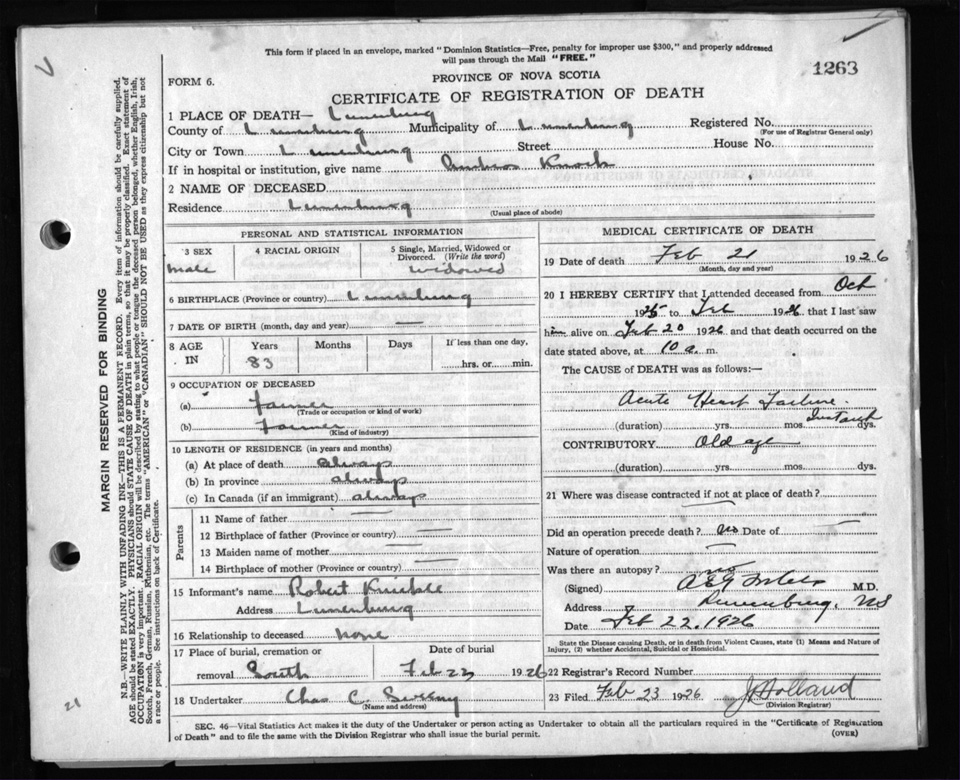 This form if placed in an envelope, marked "Dominion Statistics—Free, penalty for improper use $300," and properly addressed
will pass through the Mail "FREE."
PROVINCE OF NOVA SCOTIA
1263
FORM 6.
CERTIFICATE OF REGISTRATION OF DEATH
1 PLACE OF DEATH— Lunenburg
County of Lunenburg Municipality of Lunenburg Registered No.
(For use of Registrar General only)
City or Town Lunenburg Street House No.
If in hospital or institution, give name
2 NAME OF DECEASED
Residence Lunenburg
(Usual place of abode)
PERSONAL AND STATISTICAL INFORMATION
3 SEX 4 RACIAL ORIGIN 5 Single, Married, Widowed or
Divorced. (Write the word)
male widowed
6 BIRTHPLACE (Province or country) Lunenburg
7 DATE OF BIRTH (month, day and year) —
8 AGE IN Years Months Days If less than one day,
83 hrs. or min.
9 OCCUPATION OF DECEASED
(a) Farmer
(Trade or occupation or kind of work)
(b) Farmer
(Kind of industry)
10 LENGTH OF RESIDENCE (in years and months)
(a) At place of death always
(b) In province always
(c) In Canada (if an immigrant) always
Parents
11 Name of father —
12 Birthplace of father (Province or country) —
13 Maiden name of mother —
14 Birthplace of mother (Province or country) —
15 Informant's name Robert
Address Lunenburg
16 Relationship to deceased none
17 Place of burial, cremation or Date of burial
removal South Feb 23 1926
18 Undertaker Chas C. Sweeny
(Name and address)
MEDICAL CERTIFICATE OF DEATH
19 Date of death Feb 21 1926
(Month, day and year)
20 I HEREBY CERTIFY that I attended deceased from Oct
1925 to Feb 1926 that I last saw
him alive on Feb 20 1926 and that death occurred on the
date stated above, at 10 a. m.
The CAUSE of DEATH was as follows:—
Acute Heart Failure.
(duration) yrs. mos. Instant dys.
CONTRIBUTORY Old age
(duration) yrs. mos. dys.
21 Where was disease contracted if not at place of death?
Did an operation precede death? no Date of —
Nature of operation —
Was there an autopsy? no
(Signed) M.D.
Address Lunenburg, NS
Date Feb 22, 1926
State the Disease causing Death, or in death from Violent Causes, state (1) Means and Nature of
Injury, (2) whether Accidental, Suicidal or Homicidal.
22 Registrar's Record Number
23 Filed Feb 23 1926 J Holland
(Division Registrar)
SEC. 46—Vital Statistics Act makes it the duty of the Undertaker or person acting as Undertaker to obtain all the particulars required in the "Certificate of Registration
of Death" and to file the same with the Division Registrar who shall issue the burial permit. (OVER)
MARGIN RESERVED FOR BINDING
N.B.—WRITE PLAINLY WITH UNFADING INK—THIS IS A PERMANENT RECORD. Every item of information should be carefully supplied.
AGE should be stated EXACTLY. PHYSICIANS should STATE CAUSE OF DEATH in plain terms, so that it may be properly classified. Exact statement of
OCCUPATION is very important. RACIAL ORIGIN will be described by stating to what people or tongue the deceased person belonged, whether English, Irish,
Scotch, French, German, Russian, Ruthenian, etc. The terms "AMERICAN" or "CANADIAN" SHOULD NOT BE USED as they express citizenship but not
a race or people. See instructions on back of Certificate.
21